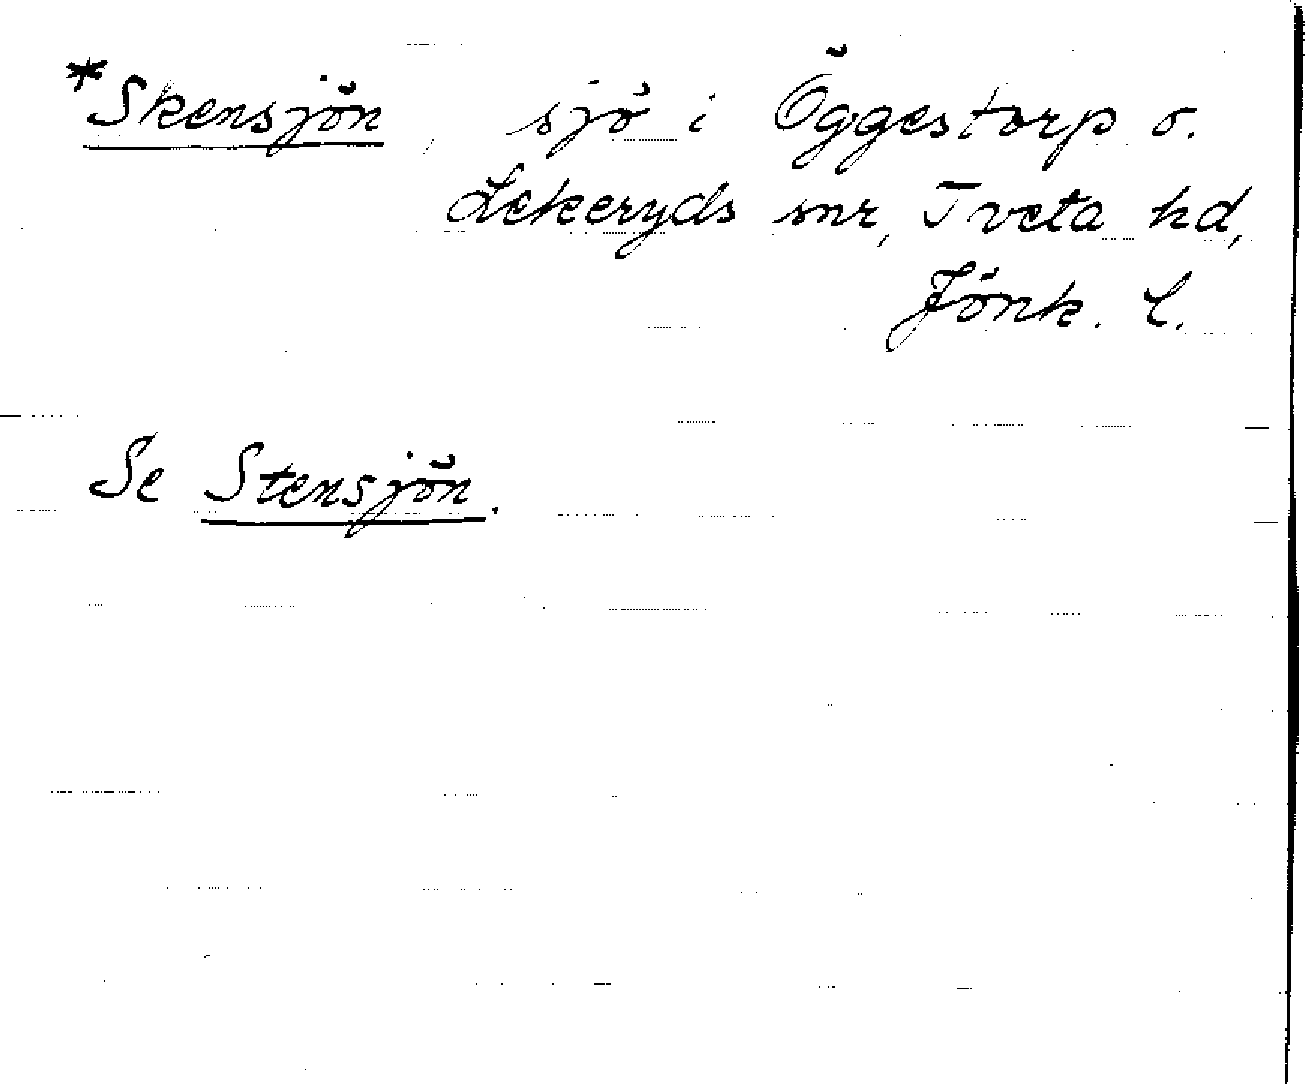 *Skensjön, sjö i Öggestorp o.
Lekeryds snr, Tveta hd,
Jönk. l.
Se Stensjön.